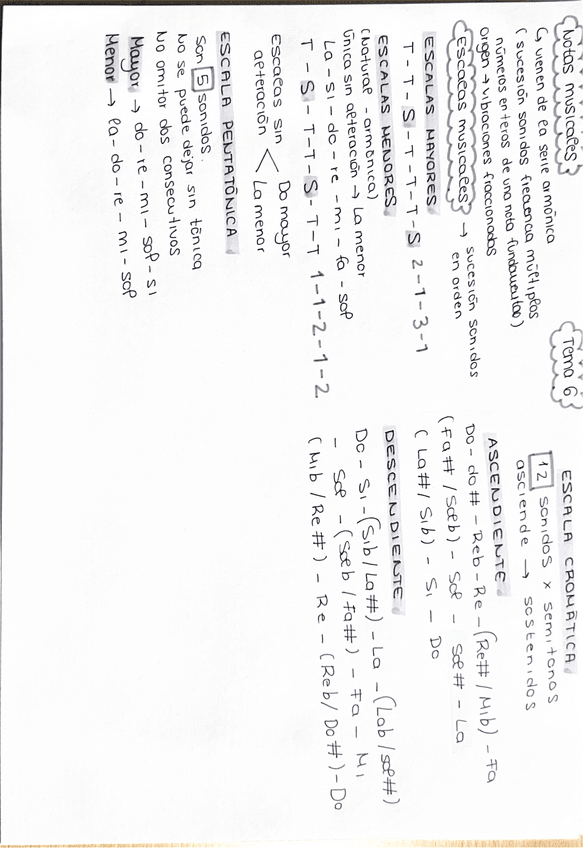 Tema 6
Notas musicales
↳ vienen de la serie armónica
(sucesión sonidos frecuencia múltiplos
números enteros de una nota fundamental)
origen → vibraciones fraccionadas
Escalas musicales → sucesión sonidos
en orden
ESCALAS MAYORES
T - T - S - T - T - T - S 2 - 1 - 3 - 1
ESCALAS MENORES
(Natural - armónica)
única sin alteración → La menor
La - si - do - re - mi - fa - sol
T - S - T - T - S - T - T 1 - 1 - 2 - 1 - 2
escalas sin alteración < Do mayor
La menor
ESCALA PENTATÓNICA
son 5 sonidos.
No se puede dejar sin tónica
No omitor dos consecutivos
Mayor → do - re - mi - sol - si
Menor → la - do - re - mi - sol
ESCALA CROMÁTICA
12 sonidos x semitonos
asciende → sostenidos
ASCENDIENTE
Do - do# - Reb - Re - (Re# / Mib) - Fa
(Fa## / Solb) - Sol - Sol# - La
(La# / Sib) - Si - Do
DESCENDIENTE
Do - Si - (Sib / La#) - La - (Lab / sol#)
- Sol - (Solb / Fa#) - Fa - Mi
(Mib / Re#) - Re - (Reb / Do#) - Do